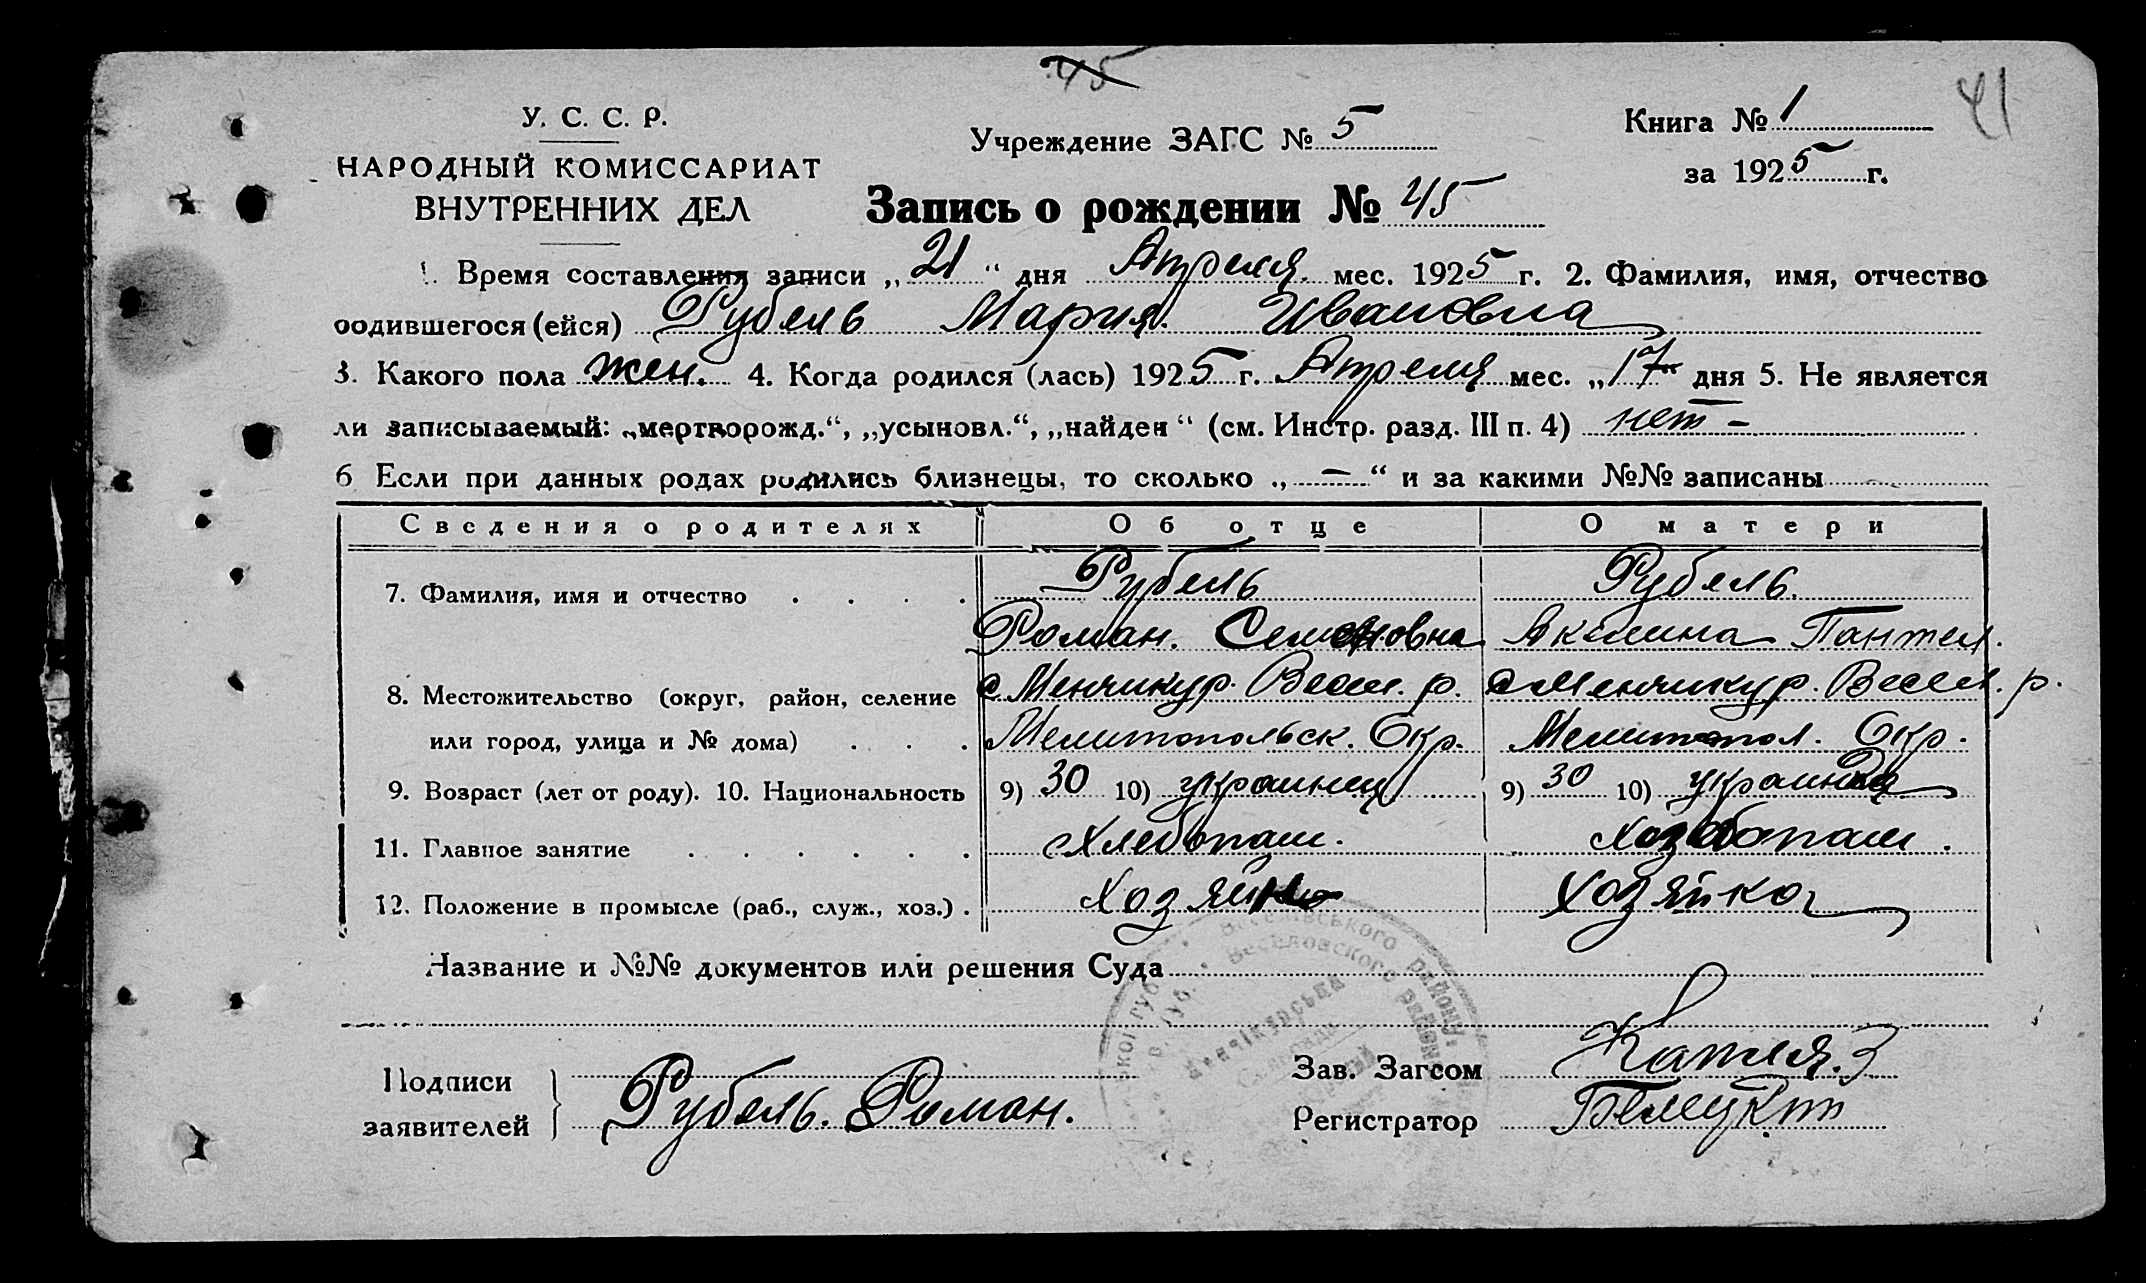 45
41
У. С. С. Р.
Учреждение ЗАГС № 5
Книга № 1
НАРОДНЫЙ КОМИССАРИАТ
за 1925 г.
ВНУТРЕННИХ ДЕЛ
Запись о рождении № 45
1. Время составления записи „21“ дня Апреля. мес. 1925 г. 2. Фамилия, имя, отчество
родившегося (ейся) Рубель Мария. Ивановна
3. Какого пола жен. 4. Когда родился (лась) 1925 г. Апреля мес. „17“ дня 5. Не является
ли записываемый: „мертворожд.“, „усыновл.“, „найден“ (см. Инстр. разд. III п. 4) нет –
6 Если при данных родах родились близнецы, то сколько „–“ и за какими №№ записаны
Сведения о родителях Об отце О матери
7. Фамилия, имя и отчество . . . . Рубель Рубель.
Роман. Семеновна Акилина Пантел.
8. Местожительство (округ, район, селение с Менчикур. Весел. р. с Менчикур. Весел. р.
или город, улица и № дома) . . . Мелитопольск. Окр. Мелитопол. Окр.
9. Возраст (лет от роду). 10. Национальность 9) 30 10) украинец 9) 30 10) украинка
11. Главное занятие . . . . . . Хлебопаш.
12. Положение в промысле (раб., служ., хоз.) . Хозяин Хозяйка
Название и №№ документов или решения Суда
Веселовського району
Веселовского район
Менчікурська
Подписи
заявителей
Рубель. Роман.
Зав. Загсом
Регистратор